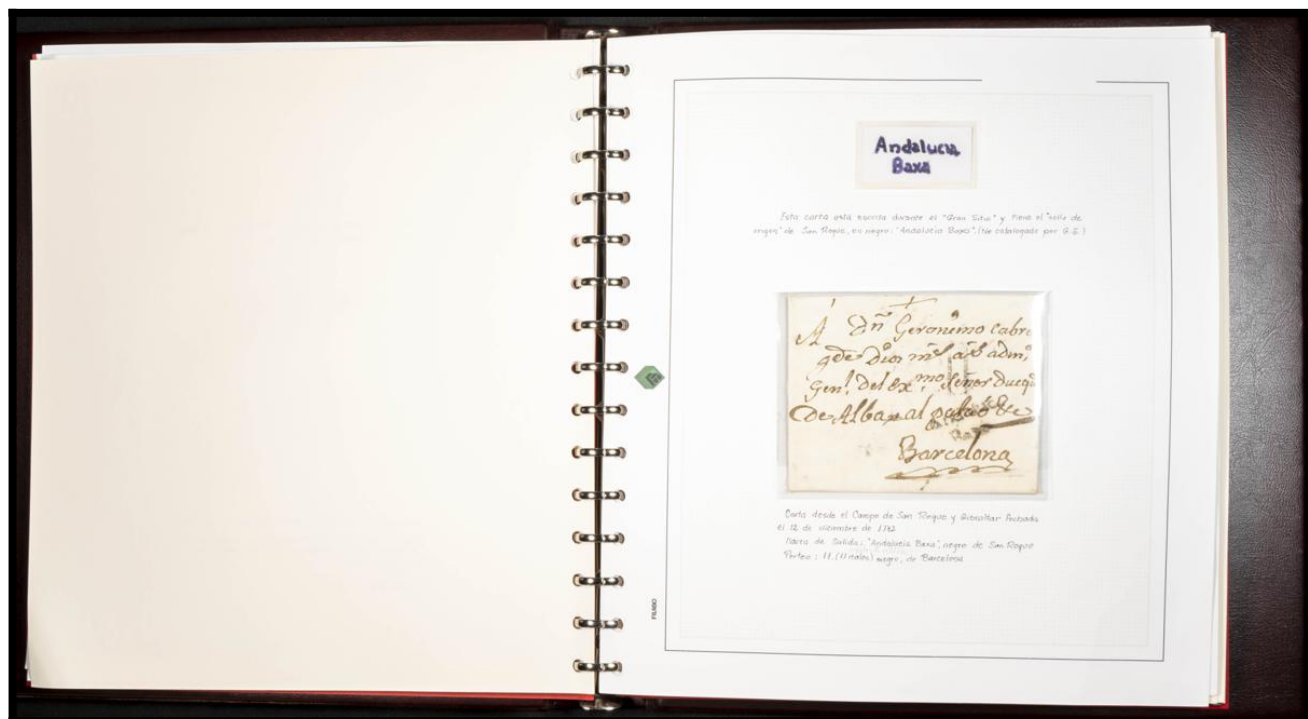 Andalucia
Baxa
Esta carta está escrita durante el "Gran Sitio" y tiene el "sello de
origen" de San Roque, en negro: "Andalucia Baxa". (No catalogado por G.G.)
A Dn Geronimo Cabre
gde Dios ms as admr
Genl. Del Exmo. Señor Duq
De Alba al
Barcelona
Carta desde el Campo de San Roque y Gibraltar fechada
el 12 de diciembre de 1782
Marca de Salida: "Andalucia Baxa", negro de San Roque
Porteo: 11. (11 reales) negro, de Barcelona
FILABO